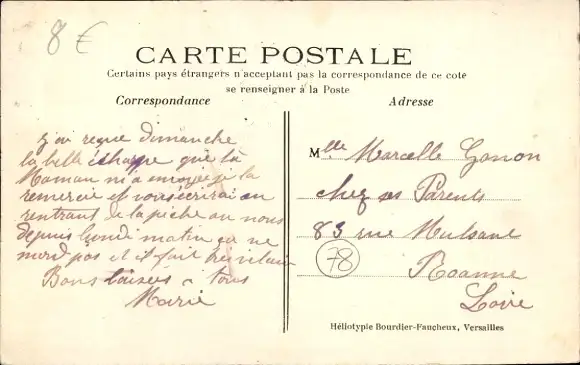 8 €
CARTE POSTALE
Certains pays étrangers n'acceptent pas la correspondance de ce coté
se renseigner à la Poste
Correspondance
Adresse
j'ai reçue dimanche
la belle écharpe que ta
Maman m'a envoyée je la
remercie et vous écrirai en
rentrant de la pêche ou nous
depuis lundi matin ça ne
mord pas et il fait très
Bons baisers à tous
Marie
Mlle Marcelle Gonon
chez ses Parents
83 rue Mulsant
78
Roanne
Loire
Héliotypie Bourdier-Faucheux, Versailles